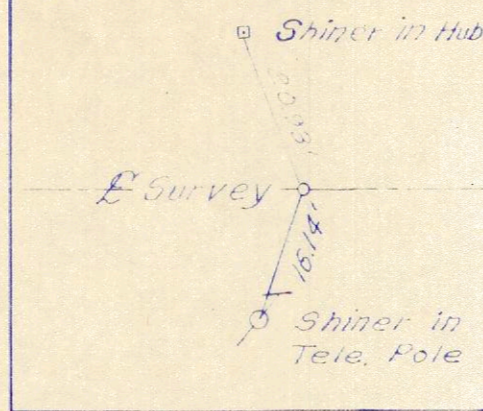 Shiner in Hub
20.93'
℄ Survey
16.14'
Shiner in
Tele. Pole